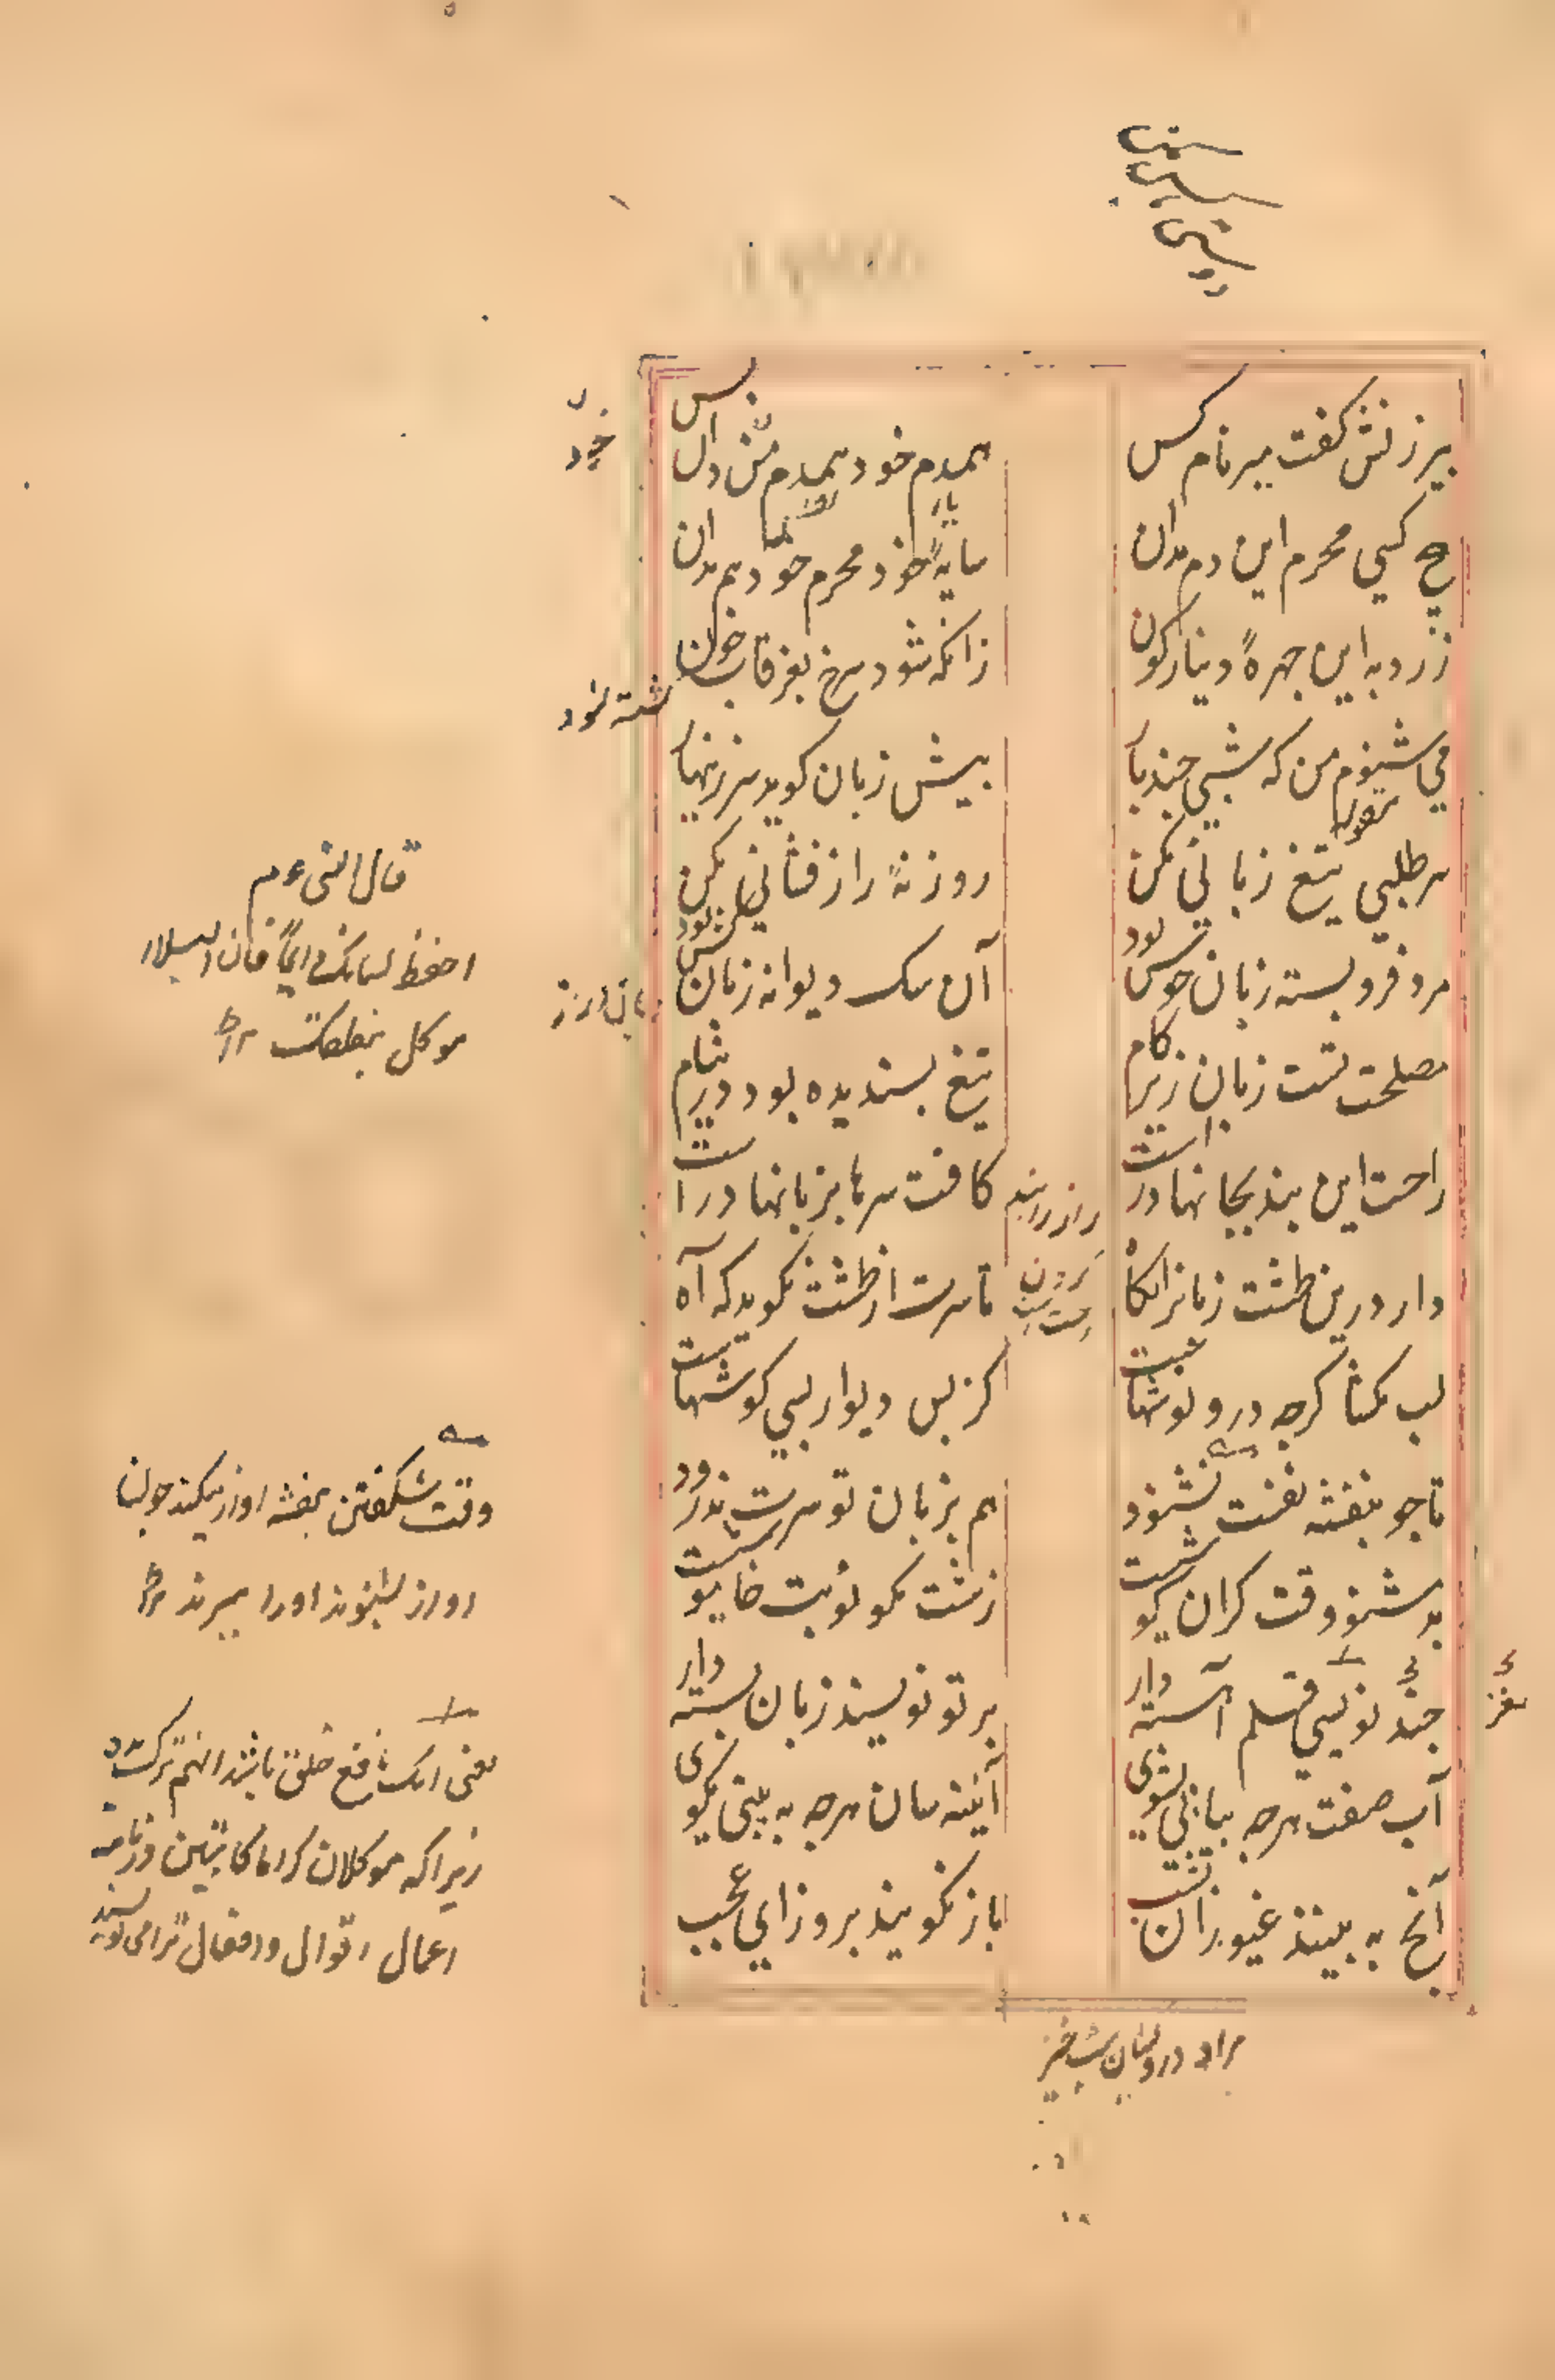 پیرزنش کفت میر نام کس
همدم خود همدم خود دان و بس
هیچ کسی محرم این دم مدان
سایهٔ خود محرم خود هم مدان
زرد به این چهرهٔ دینارکون
زانکه شود سرخ بغرقاب خون
می شنوم من که شبی چند بار
پیش زبان کوید سر زینهار
سر طلبی تیغ زبانی مکن
روز نهٔ راز فشانی مکن
مرد فرو بسته زبان خوش بود
آن سک دیوانه زبان کش بود
مصلحت تست زبان زیر کام
تیغ پسندیده بود در نیام
راحت این پند بجانها در است
کافت سرها بزبانها در است
دار درین طشت زبانرا نکاه
تا سرت از طشت نکوید که آه
لب مکشا کرچه درو نوشهاست
کز پس دیوار بسی کوشهاست
تا چو بنفشه نفست نشنود
هم بزبان تو سرت ندرود
بد مشنو وقت کران کوشیست
زشت مکو نوبت خاموشیست
چند نویسی قلم آهسته دار
بر تو نویسند زبان بسته دار
آب صفت هرچه بیابی بشوی
آینه سان هرچه به بینی مکوی
آنچ به بینند غیوران شب
باز نکویند بروز ای عجب
قال النبی عم
احفظ لسانک فان البلاء
موکل بنطقک
وقت شکفتن بنفشه اواز میکند چون
اواز بشنوند اورا میبرند
یعنی خلق باشد
زیرا که موکلان کراما کاتبین در نامه
اعمال اقوال و افعال ترا می نویسند
مراد درویشان شب خیز